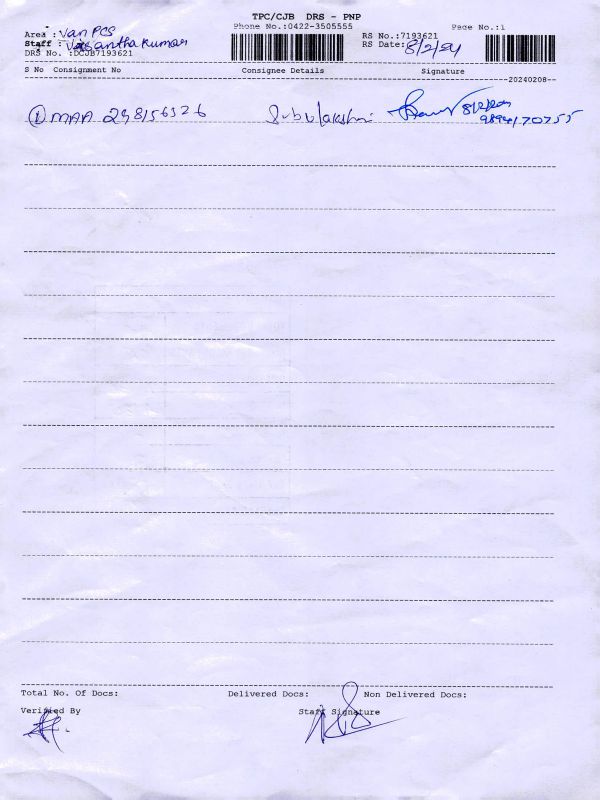 TPC/CJB DRS - PNP
Phone No.:0422-3505555 Page No.:1
Area : Van PCS
Staff : Vasanthakumar
DRS No. :DCJB7193621
RS No.:7193621
RS Date: 8/2/24
S No Consignment No Consignee Details Signature
20240208
① MAA 298156326 Subulakshmi 9894170755
Total No. Of Docs: Delivered Docs: Non Delivered Docs:
Verified By Staff Signature